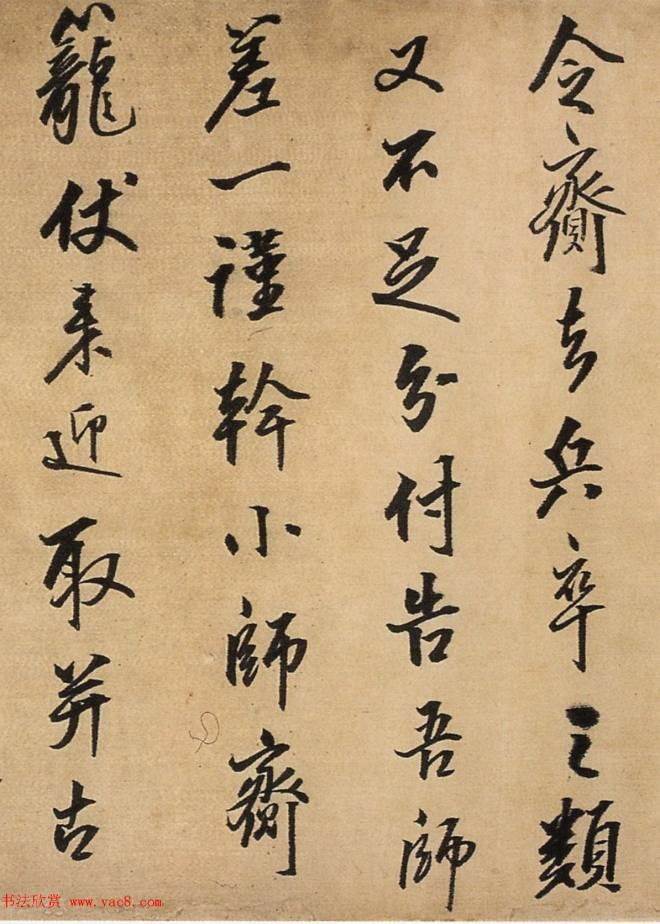 令齎去兵卒之類
又不足分付告吾師
差一謹幹小師齎
籠仗来迎取并古
书法欣赏 www.yac8.com